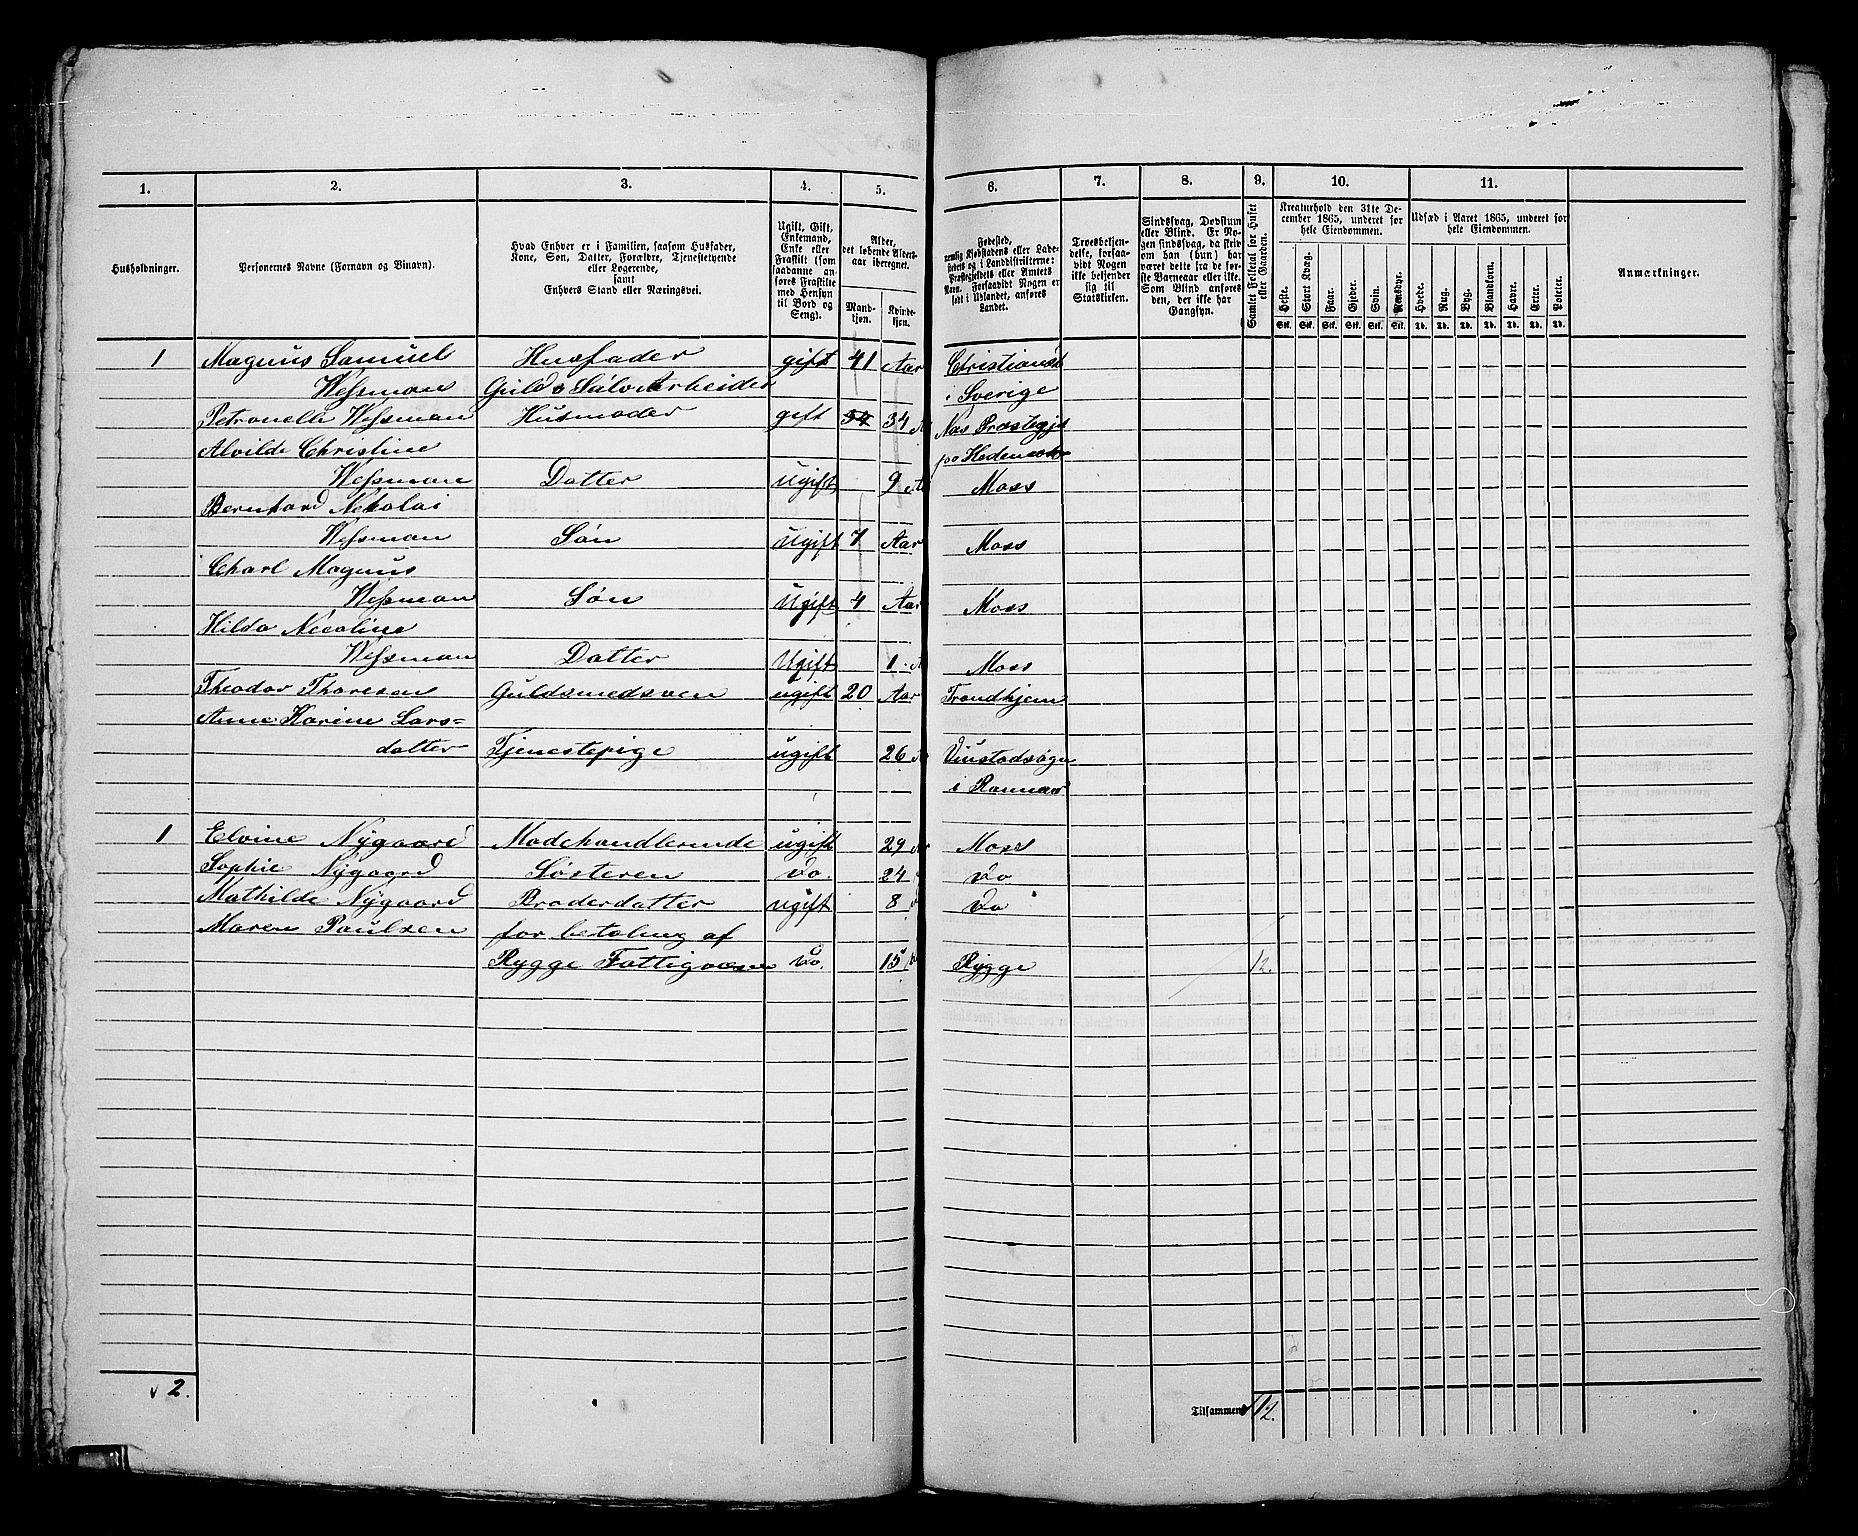 1. 2. 3. 4. 5. 6. 7. 8. 9. 10. 11.
Husholdninger.
Personernes Navne (Fornavn og Binavn).
Hvad Enhver er i Familien, saasom Husfader,
Kone, Søn, Datter, Forældre, Tjenestetyende
eller Logerende,
samt
Enhvers Stand eller Næringsvei.
Ugift, Gift,
Enkemand,
Enke eller
Fraskilt (som
saadanne an-
føres Fraskilte
med Hensyn
til Bord og
Seng).
Alder,
det løbende Alders-
aar iberegnet.
Mand-
kjøn.
Kvinde-
kjøn.
Fødested,
nemlig Kjøbstadens eller Lade-
stedets og i Landdistrikterne:
Præstegjeldets eller Amtets
Navn. Forsaavidt Nogen er
født i Udlandet, anføres
Landet.
Troesbekjen-
delse, forsaa-
vidt Nogen
ikke bekjender
sig til
Statskirken.
Sindssvag, Døvstum
eller Blind. Er No-
gen sindssvag, da skriv
om han (hun) har
været dette fra de før-
ste Barneaar eller ikke.
Som Blind anføres
den, der ikke har
Gangsyn.
Samlet Folketal for Huset
eller Gaarden.
Kreaturhold den 31te De-
cember 1865, underet for
hele Eiendommen.
Heste. Stort Kvæg. Faar. Gjeder. Svin. Rensdyr.
Stk. Stk. Stk. Stk. Stk. Stk.
Udsæd i Aaret 1865, underet for
hele Eiendommen.
Hvede. Rug. Byg. Blandkorn. Havre. Erter. Poteter.
Td. Td. Td. Td. Td. Td. Td.
Anmærkninger.
1 Magnus Samuel Husfader gift 41 Aar Christianst
Wessman Guld o Sölv Arbeider i Sverige
Petronelle Wessman Husmoder gift 54 34 A Næs Præstegj
Alvilde Christine paa Hedemark
Wessman Datter Ugift 9 A Moss
Bernhard Nikolai
Wessman Sön Ugift 7 Aar Moss
Charl Magnus
Wessman Sön Ugift 4 Aar Moss
Hilda Nicoline
Wessman Datter Ugift 1 A Moss
Theodor Thoresen Guldsmedsven ugift 20 Aar Trondhjem
Anne Karine Lars=
datter Tjenestepige ugift 26 A
i
1 Elvine Nygaard Modehandlerinde ugift 29 Aar Moss
Sophie Nygaard Søsteren Do. 24 Do
Mathilde Nygaard Broderdatter ugift 8 Do
Maren Paulsen for betaling af
Rygge Fattigvæsen Do. 15 Rygge 12.
2.
Tilsammen 12.